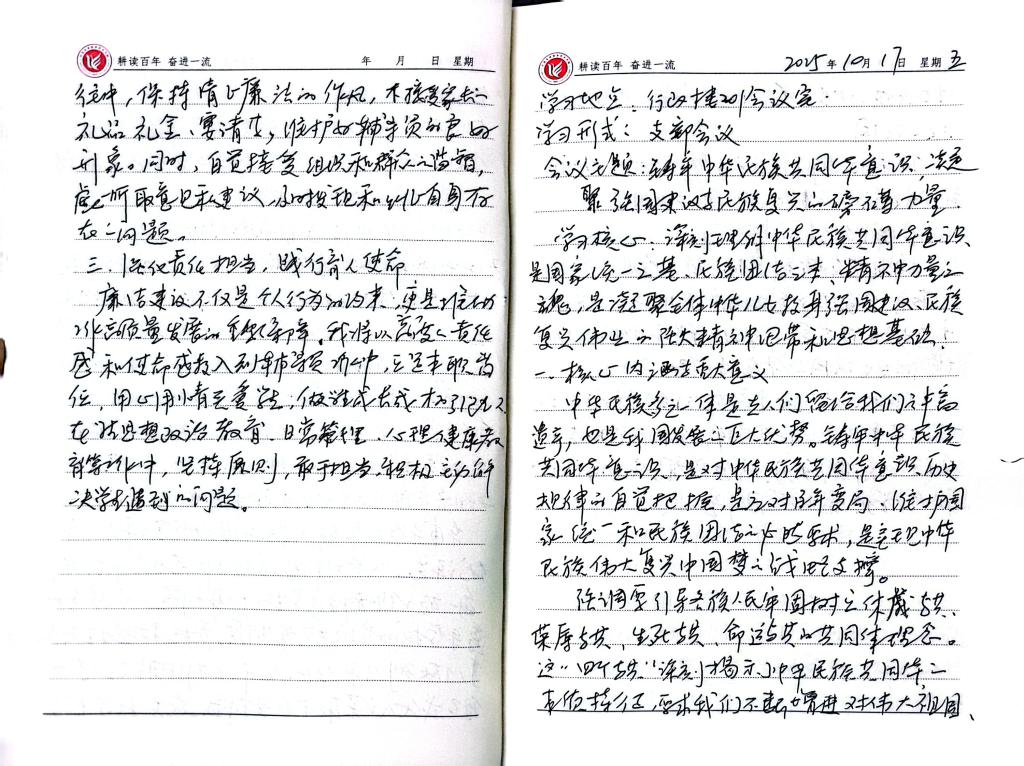 耕读百年 奋进一流 年 月 日 星期
往中，保持清正廉洁的作风，不接受家长的
礼品礼金、宴请等，维护好辅导员的良好
形象。同时，自觉接受组织和群众的监督，
虚心听取意见和建议，及时发现和纠正自身存
在的问题。
三、强化责任担当，践行育人使命
廉洁建设不仅是个人行为的约束，更是推动
工作高质量发展的重要保障。我将以高度的责任
感和使命感投入到辅导员工作中，立足本职岗
位，用心用情关爱学生，做学生成长成才的引路人。
在思想政治教育、日常管理、心理健康教
育等工作中，坚持原则，敢于担当，积极主动解
决学生遇到的问题。
耕读百年 奋进一流 2025年10月17日 星期五
学习地点：行政楼201会议室
学习形式：支部会议
会议主题：铸牢中华民族共同体意识，凝
聚强国建设民族复兴的磅礴力量
学习核心：深刻理解中华民族共同体意识
是国家统一之基、民族团结之本、精神力量之
魂，是凝聚全体中华儿女投身强国建设、民族
复兴伟业的强大精神纽带和思想基础。
一、核心内涵与重大意义
中华民族多元一体是先人们留给我们的丰富
遗产，也是我国发展的巨大优势。铸牢中华民族
共同体意识，是对中华民族共同体意识历史
规律的自觉把握，是应对百年变局、维护国
家统一和民族团结的必然要求，是实现中华
民族伟大复兴中国梦的战略支撑。
强调要引导各族人民牢固树立休戚与共、
荣辱与共、生死与共、命运与共的共同体理念。
这“四个与共”深刻揭示了中华民族共同体的
本质特征，要求我们不断增进对伟大祖国、